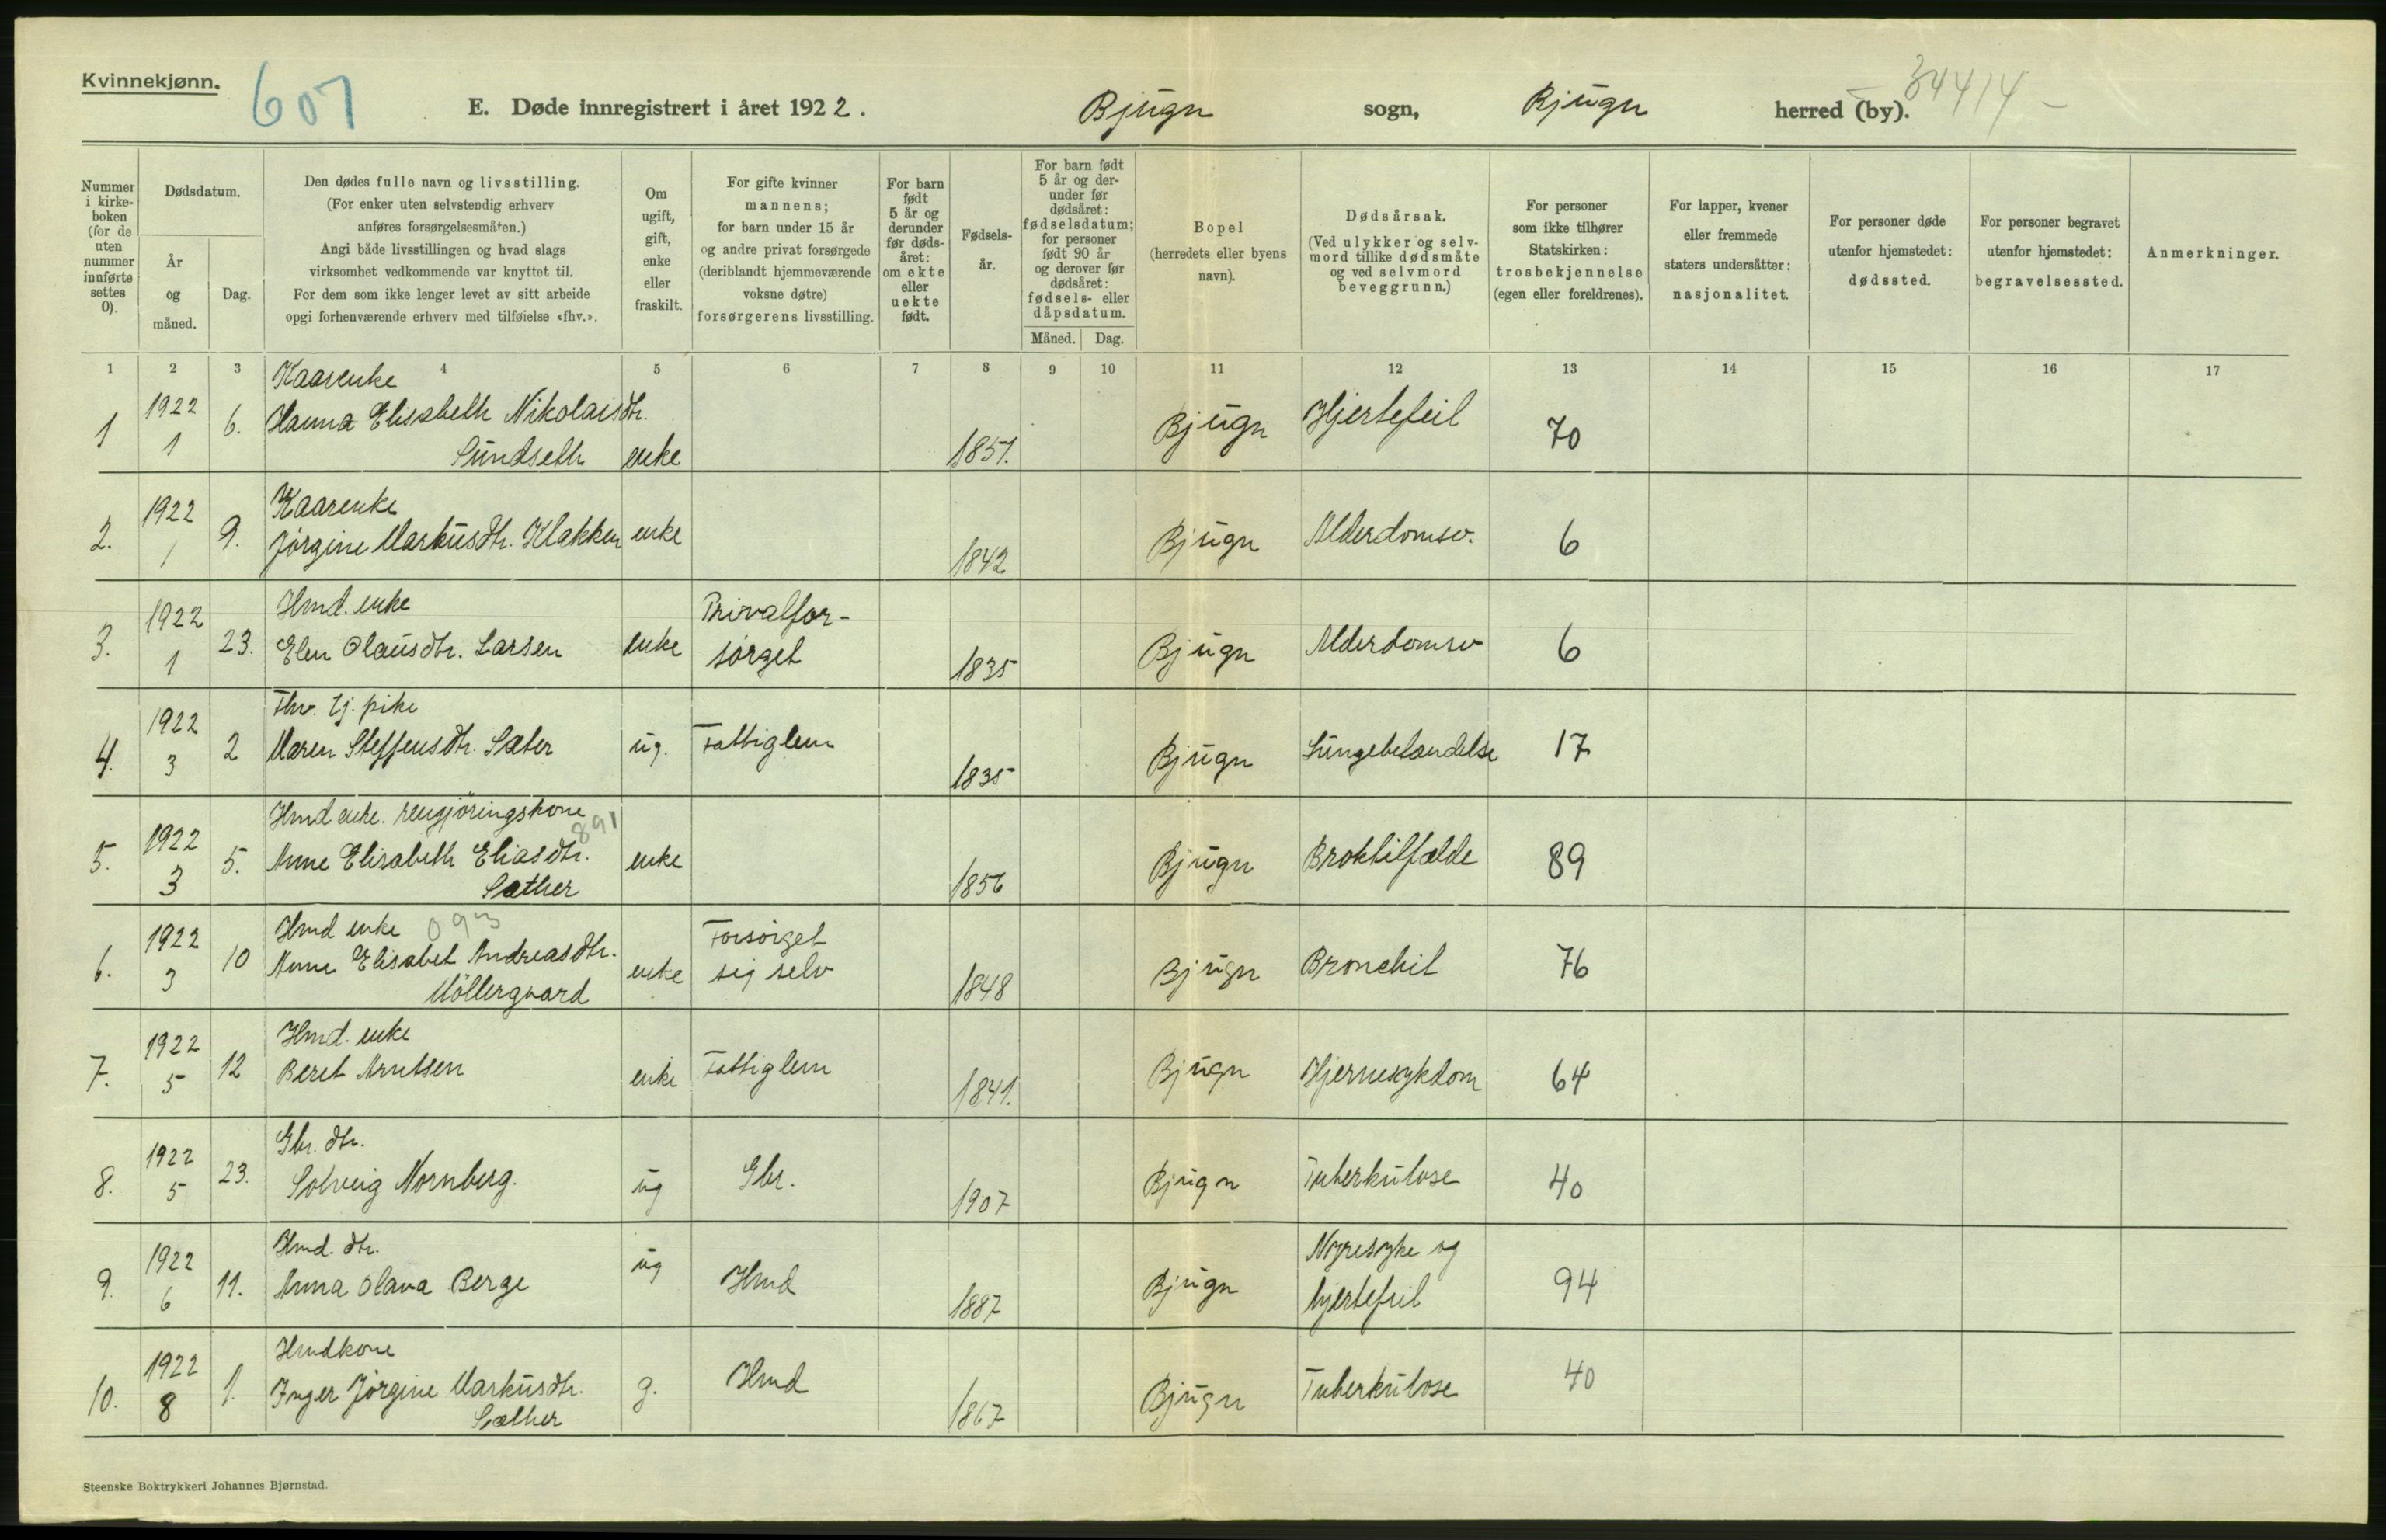 Kvinnekjønn.
607
E. Døde innregistrert i året 1922.
Bjugn sogn, Bjugn herred (by).
34414
Nummer i kirke-boken (for de uten nummer innførte settes 0).
Dødsdatum.
År og måned.
Dag.
Den dødes fulle navn og livsstilling.
(For enker uten selvstendig erhverv
anføres forsørgelsesmåten.)
Angi både livsstillingen og hvad slags
virksomhet vedkommende var knyttet til.
For dem som ikke lenger levet av sitt arbeide
opgi forhenværende erhverv med tilføielse «fhv.».
Om ugift, gift, enke eller fraskilt.
For gifte kvinner
mannens;
for barn under 15 år
og andre privat forsørgede
(deriblandt hjemmeværende
voksne døtre)
forsørgerens livsstilling.
For barn født 5 år og derunder før døds-året: om ekte eller uekte født.
Fødsels-år.
For barn født
5 år og der-
under før
dødsåret:
fødselsdatum;
for personer
født 90 år
og derover før
dødsåret:
fødsels- eller
dåpsdatum.
Måned. Dag.
Bopel
(herredets eller byens
navn).
Dødsårsak.
(Ved ulykker og selv-
mord tillike dødsmåte
og ved selvmord
beveggrunn.)
For personer
som ikke tilhører
Statskirken:
trosbekjennelse
(egen eller foreldrenes).
For lapper, kvener
eller fremmede
staters undersåtter:
nasjonalitet.
For personer døde
utenfor hjemstedet:
dødssted.
For personer begravet
utenfor hjemstedet:
begravelsessted.
Anmerkninger.
1 2 3 4 5 6 7 8 9 10 11 12 13 14 15 16 17
Kaarenke
1 1922 6. Hanna Elisabeth Nikolaisdtr. Bjugn Hjertefeil 70
1 Sundseth enke 1851.
Kaarenke
2. 1922 9. Jørgine Markusdtr. Klakken enke Bjugn Alderdomsv. 6
1 1842
Hmd. enke Privatfor-
3. 1922 23. Elen Olausdtr. Larsen enke sørget Bjugn Alderdomsv 6
1 1835
Fhv. tj. pike
4. 1922 2 Maren Steffensdtr. Sæter ug. Fattiglem Bjugn Lungebetændelse 17
3 1835
Hmd enke. rengjöringskone
891
5. 1922 5. Anne Elisabeth Eliasdtr. enke Bjugn Broktilfælde 89
3 Sæther 1856
Hmd enke 093 Forsörget
6. 1922 10 Anne Elisabet Andreasdtr. enke sig selv Bjugn Bronchit 76
3 Möllergaard 1848
Hmd. enke
7. 1922 12 Beret Arntsen enke Fattiglem Bjugn Hjernesykdom 64
5 1841.
Gbr. dtr.
8. 1922 23. Solveig Nornberg. ug Gbr. Bjugn Tuberkulose 40
5 1907
Hmd. dtr. Nyresyke og
9. 1922 11. Anna Olava Berge ug Hmd Bjugn hjertefeil 94
6 1887
Hmdkone
10. 1922 1. Inger Jørgine Markusdtr. g. Hmd Bjugn Tuberkulose 40
8 Sæther 1867
Steenske Boktrykkeri Johannes Bjørnstad.